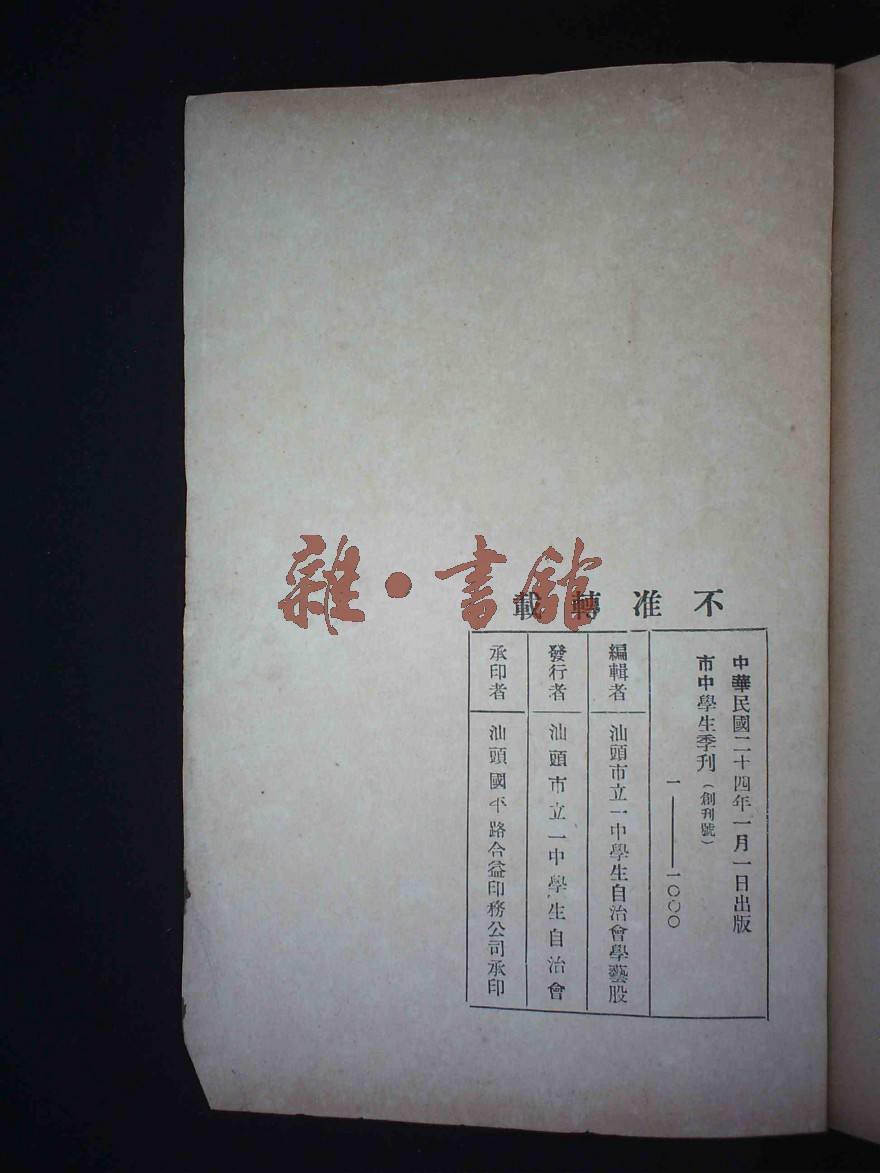 雜·書館
不准轉載
中華民國二十四年一月一日出版
市中學生季刊（創刊號）
一——一〇〇〇
編輯者 汕頭市立一中學生自治會學藝股
發行者 汕頭市立一中學生自治會
承印者 汕頭國平路合益印務公司承印